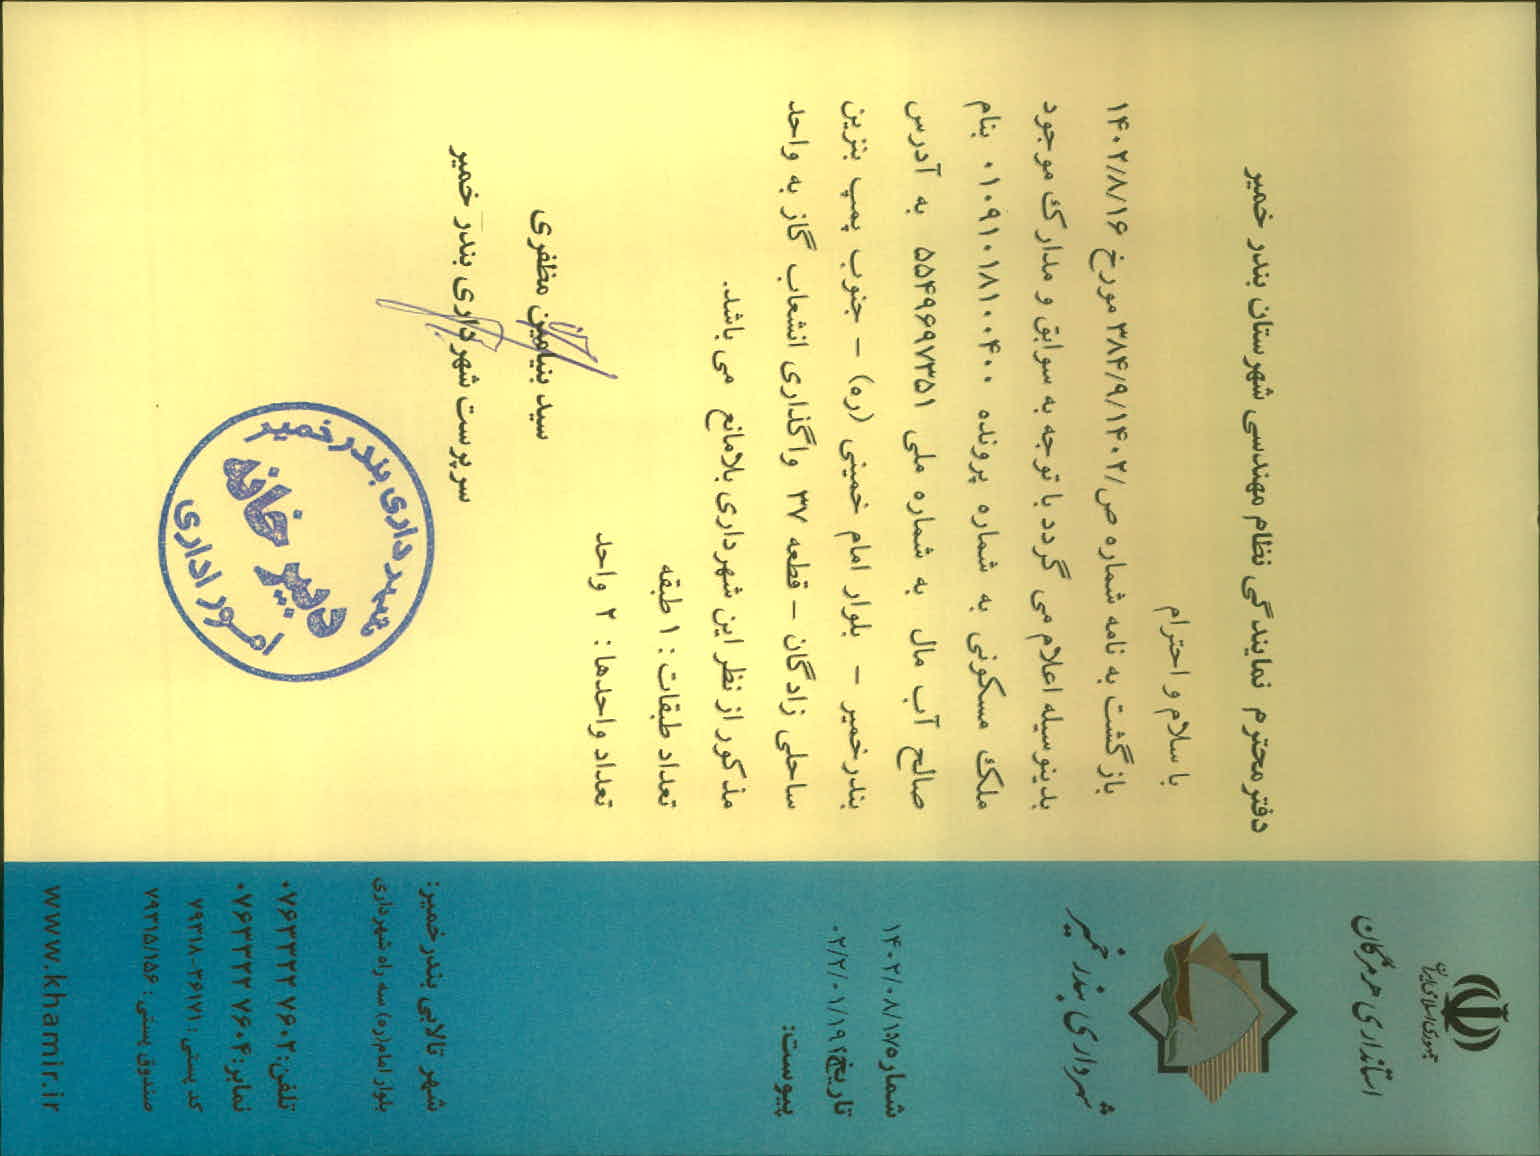 جمهوری اسلامی ایران
استانداری هرمزگان
شهرداری بندر خمیر
شماره
تاریخ
پیوست:
شهر تالابی بندرخمیر:
بلوار امام(ره) سه راه شهرداری
تلفن: ۰۷۶۳۳۲۲ ۷۶۰۲
نمابر: ۰۷۶۳۳۲۲ ۷۶۰۴
کد پستی: ۷۹۳۱۸-۳۶۱۷۱
صندوق پستی: ۷۹۳۱۵/۱۵۶
www.khamir.ir
دفتر محترم نمایندگی نظام مهندسی شهرستان بندر خمیر
با سلام و احترام
بازگشت به نامه شماره ص/۳۸۴/۹/۱۴۰۲ مورخ ۱۴۰۲/۸/۱۶
بدینوسیله اعلام می گردد با توجه به سوابق و مدارک موجود
ملک مسکونی به شماره پرونده ۰۱۰۹۱۰۱۸۱۰۰۴۰۰ بنام
صالح آب مال به شماره ملی ۵۵۴۹۶۹۷۳۵۱ به آدرس
بندرخمیر – بلوار امام خمینی (ره) – جنوب پمپ بنزین
ساحلی زادگان – قطعه ۳۷ واگذاری انشعاب گاز به واحد
مذکور از نظر این شهرداری بلامانع می باشد.
تعداد طبقات: ۱ طبقه
تعداد واحدها: ۲ واحد
سید بنیامین مظفری
سرپرست شهرداری بندر خمیر
شهرداری بندر خمیر
دبیر خانه
امور اداری